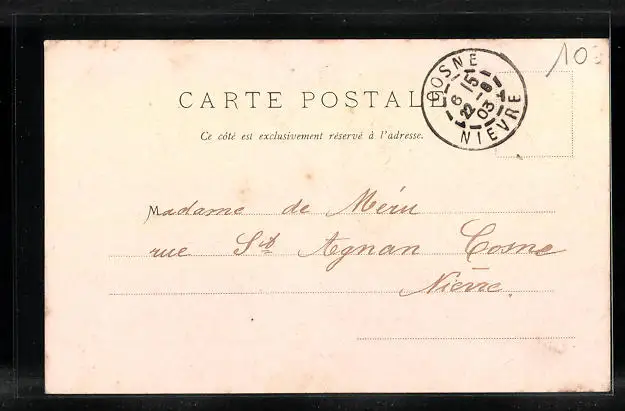 10
COSNE
6 15
22 - 8
03
NIEVRE
CARTE POSTALE
Ce côté est exclusivement réservé à l'adresse.
Madame de Méru
rue St Agnan Cosne
Nièvre.